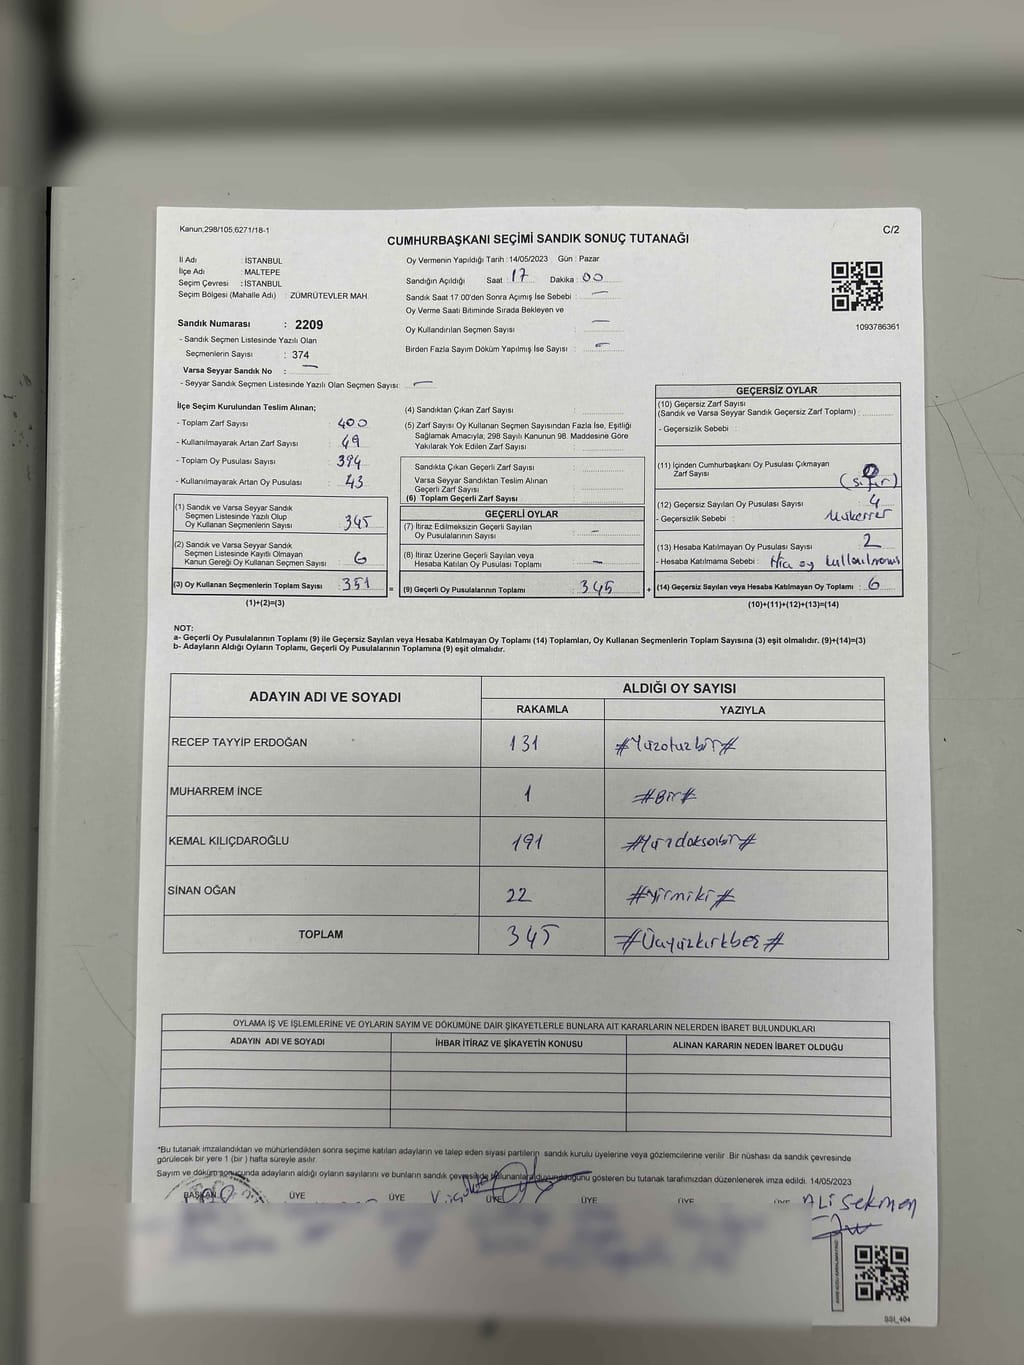 Kanun,298/105,6271/18-1
C/2
CUMHURBAŞKANI SEÇİMİ SANDIK SONUÇ TUTANAĞI
İl Adı : İSTANBUL
İlçe Adı : MALTEPE
Seçim Çevresi : İSTANBUL
Seçim Bölgesi (Mahalle Adı) : ZÜMRÜTEVLER MAH.
Sandık Numarası : 2209
- Sandık Seçmen Listesinde Yazılı Olan
Seçmenlerin Sayısı : 374
Varsa Seyyar Sandık No : —
- Seyyar Sandık Seçmen Listesinde Yazılı Olan Seçmen Sayısı: —
Oy Vermenin Yapıldığı Tarih : 14/05/2023 Gün : Pazar
Sandığın Açıldığı Saat : 17 Dakika : 00
Sandık Saat 17.00'den Sonra Açımış İse Sebebi : —
Oy Verme Saati Bitiminde Sırada Bekleyen ve
Oy Kullandırılan Seçmen Sayısı : —
Birden Fazla Sayım Döküm Yapılmış İse Sayısı : —
1093786361
İlçe Seçim Kurulundan Teslim Alınan;
- Toplam Zarf Sayısı : 400
- Kullanılmayarak Artan Zarf Sayısı : 49
- Toplam Oy Pusulası Sayısı : 394
- Kullanılmayarak Artan Oy Pusulası : 43
(1) Sandık ve Varsa Seyyar Sandık
Seçmen Listesinde Yazılı Olup
Oy Kullanan Seçmenlerin Sayısı : 345
(2) Sandık ve Varsa Seyyar Sandık
Seçmen Listesinde Kayıtlı Olmayan
Kanun Gereği Oy Kullanan Seçmen Sayısı : 6
(3) Oy Kullanan Seçmenlerin Toplam Sayısı : 351
(1)+(2)=(3)
(4) Sandıktan Çıkan Zarf Sayısı :
(5) Zarf Sayısı Oy Kullanan Seçmen Sayısından Fazla İse, Eşitliği
Sağlamak Amacıyla, 298 Sayılı Kanunun 98. Maddesine Göre
Yakılarak Yok Edilen Zarf Sayısı :
Sandıkta Çıkan Geçerli Zarf Sayısı :
Varsa Seyyar Sandıktan Teslim Alınan
Geçerli Zarf Sayısı :
(6) Toplam Geçerli Zarf Sayısı :
GEÇERLİ OYLAR
(7) İtiraz Edilmeksizin Geçerli Sayılan
Oy Pusulalarının Sayısı : —
(8) İtiraz Üzerine Geçerli Sayılan veya
Hesaba Katılan Oy Pusulası Toplamı : —
= (9) Geçerli Oy Pusulalarının Toplamı : 345
GEÇERSİZ OYLAR
(10) Geçersiz Zarf Sayısı
(Sandık ve Varsa Seyyar Sandık Geçersiz Zarf Toplamı) :
- Geçersizlik Sebebi :
(11) İçinden Cumhurbaşkanı Oy Pusulası Çıkmayan
Zarf Sayısı : 0
(sıfır)
(12) Geçersiz Sayılan Oy Pusulası Sayısı : 4
- Geçersizlik Sebebi : Mükerrer
(13) Hesaba Katılmayan Oy Pusulası Sayısı : 2
- Hesaba Katılmama Sebebi : Hiç oy kullanılmamış
+ (14) Geçersiz Sayılan veya Hesaba Katılmayan Oy Toplamı : 6
(10)+(11)+(12)+(13)=(14)
NOT:
a- Geçerli Oy Pusulalarının Toplamı (9) ile Geçersiz Sayılan veya Hesaba Katılmayan Oy Toplamı (14) Toplamları, Oy Kullanan Seçmenlerin Toplam Sayısına (3) eşit olmalıdır. (9)+(14)=(3)
b- Adayların Aldığı Oyların Toplamı, Geçerli Oy Pusulalarının Toplamına (9) eşit olmalıdır.
ADAYIN ADI VE SOYADI
ALDIĞI OY SAYISI
RAKAMLA YAZIYLA
RECEP TAYYİP ERDOĞAN 131 #Yüzotuzbir#
MUHARREM İNCE 1 #Bir#
KEMAL KILIÇDAROĞLU 191 #Yüzdoksanbir#
SİNAN OĞAN 22 #Yirmiki#
TOPLAM 345 #Üçyüzkırkbeş#
OYLAMA İŞ VE İŞLEMLERİNE VE OYLARIN SAYIM VE DÖKÜMÜNE DAİR ŞİKAYETLERLE BUNLARA AİT KARARLARIN NELERDEN İBARET BULUNDUKLARI
ADAYIN ADI VE SOYADI İHBAR İTİRAZ VE ŞİKAYETİN KONUSU ALINAN KARARIN NEDEN İBARET OLDUĞU
*Bu tutanak imzalandıktan ve mühürlendikten sonra seçime katılan adayların ve talep eden siyasi partilerin sandık kurulu üyelerine veya gözlemcilerine verilir. Bir nüshası da sandık çevresinde
görülecek bir yere 1 (bir ) hafta süreyle asılır.
Sayım ve döküm sonucunda adayların aldığı oyların sayılarını ve bunların sandık çevresinde bulunanlara duyurulduğunu gösteren bu tutanak tarafımızdan düzenlenerek imza edildi. 14/05/2023
BAŞKAN ÜYE ÜYE ÜYE ÜYE ÜYE ÜYE
ALİ Sekmen
SSI_404